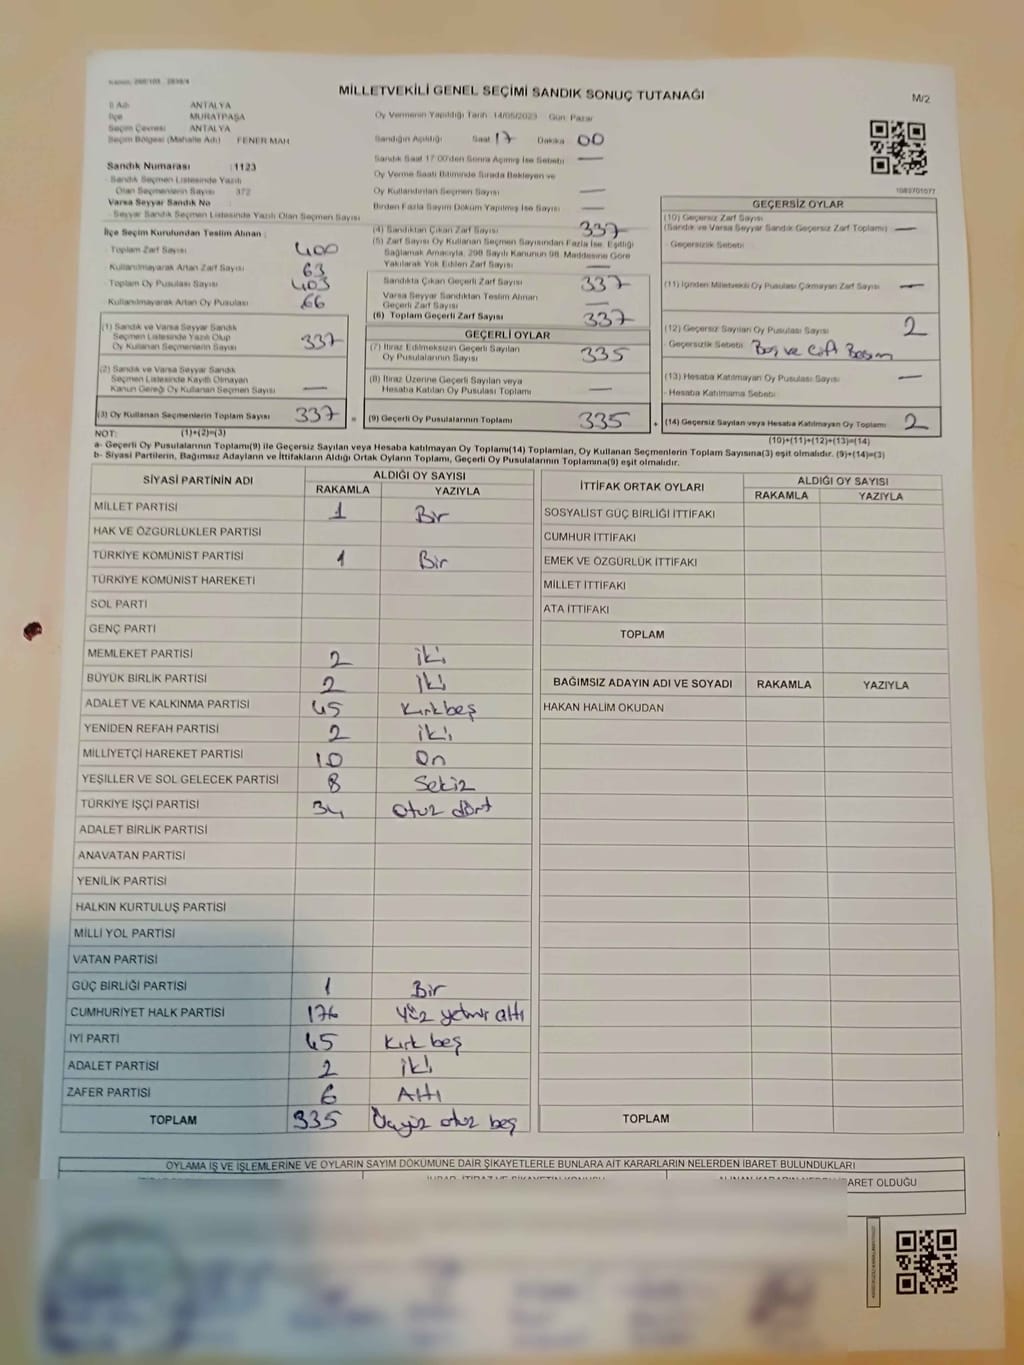 MİLLETVEKİLİ GENEL SEÇİMİ SANDIK SONUÇ TUTANAĞI
M/2
İl Adı ANTALYA
İlçe MURATPAŞA
Seçim Çevresi ANTALYA
Seçim Bölgesi (Mahalle Adı) FENER MAH
Sandık Numarası : 1123
- Sandık Seçmen Listesinde Yazılı
Olan Seçmenlerin Sayısı 372
Varsa Seyyar Sandık No
- Seyyar Sandık Seçmen Listesinde Yazılı Olan Seçmen Sayısı
Oy Vermenin Yapıldığı Tarih : 14/05/2023 Gün: Pazar
Sandığın Açıldığı Saat 17 Dakika 00
Sandık Saat 17:00'den Sonra Açılmış İse Sebebi —
Oy Verme Saati Bitiminde Sırada Bekleyen ve
Oy Kullandırılan Seçmen Sayısı —
Birden Fazla Sayım Döküm Yapılmış İse Sayısı —
1083701077
İlçe Seçim Kurulundan Teslim Alınan :
- Toplam Zarf Sayısı 400
- Kullanılmayarak Artan Zarf Sayısı 63
- Toplam Oy Pusulası Sayısı 403
- Kullanılmayarak Artan Oy Pusulası 66
(1) Sandık ve Varsa Seyyar Sandık
Seçmen Listesinde Yazılı Olup
Oy Kullanan Seçmenlerin Sayısı 337
(2) Sandık ve Varsa Seyyar Sandık
Seçmen Listesinde Kayıtlı Olmayan
Kanun Gereği Oy Kullanan Seçmen Sayısı —
(3) Oy Kullanan Seçmenlerin Toplam Sayısı 337 =
(4) Sandıktan Çıkan Zarf Sayısı 337
(5) Zarf Sayısı Oy Kullanan Seçmen Sayısından Fazla İse, Eşitliği
Sağlamak Amacıyla, 298 Sayılı Kanunun 98. Maddesine Göre
Yakılarak Yok Edilen Zarf Sayısı —
Sandıkta Çıkan Geçerli Zarf Sayısı 337
Varsa Seyyar Sandıktan Teslim Alınan
Geçerli Zarf Sayısı —
(6) Toplam Geçerli Zarf Sayısı 337
GEÇERLİ OYLAR
(7) İtiraz Edilmeksizin Geçerli Sayılan
Oy Pusulalarının Sayısı 335
(8) İtiraz Üzerine Geçerli Sayılan veya
Hesaba Katılan Oy Pusulası Toplamı —
(9) Geçerli Oy Pusulalarının Toplamı 335 +
GEÇERSİZ OYLAR
(10) Geçersiz Zarf Sayısı
(Sandık ve Varsa Seyyar Sandık Geçersiz Zarf Toplamı) —
- Geçersizlik Sebebi:
(11) İçinden Milletvekili Oy Pusulası Çıkmayan Zarf Sayısı —
(12) Geçersiz Sayılan Oy Pusulası Sayısı 2
- Geçersizlik Sebebi: Boş ve Çift Basım
(13) Hesaba Katılmayan Oy Pusulası Sayısı —
- Hesaba Katılmama Sebebi:
(14) Geçersiz Sayılan veya Hesaba Katılmayan Oy Toplamı 2
NOT: (1)+(2)=(3)
(10)+(11)+(12)+(13)=(14)
a- Geçerli Oy Pusulalarının Toplamı(9) ile Geçersiz Sayılan veya Hesaba katılmayan Oy Toplamı(14) Toplamları, Oy Kullanan Seçmenlerin Toplam Sayısına(3) eşit olmalıdır. (9)+(14)=(3)
b- Siyasi Partilerin, Bağımsız Adayların ve İttifakların Aldığı Ortak Oyların Toplamı, Geçerli Oy Pusulalarının Toplamına(9) eşit olmalıdır.
SİYASİ PARTİNİN ADI ALDIĞI OY SAYISI
RAKAMLA YAZIYLA
MİLLET PARTİSİ 1 Bir
HAK VE ÖZGÜRLÜKLER PARTİSİ
TÜRKİYE KOMÜNİST PARTİSİ 1 Bir
TÜRKİYE KOMÜNİST HAREKETİ
SOL PARTİ
GENÇ PARTİ
MEMLEKET PARTİSİ 2 iki
BÜYÜK BİRLİK PARTİSİ 2 iki
ADALET VE KALKINMA PARTİSİ 45 Kırkbeş
YENİDEN REFAH PARTİSİ 2 iki
MİLLİYETÇİ HAREKET PARTİSİ 10 On
YEŞİLLER VE SOL GELECEK PARTİSİ 8 Sekiz
TÜRKİYE İŞÇİ PARTİSİ 34 otuz dört
ADALET BİRLİK PARTİSİ
ANAVATAN PARTİSİ
YENİLİK PARTİSİ
HALKIN KURTULUŞ PARTİSİ
MİLLİ YOL PARTİSİ
VATAN PARTİSİ
GÜÇ BİRLİĞİ PARTİSİ 1 Bir
CUMHURİYET HALK PARTİSİ 176 yüz yetmiş altı
İYİ PARTİ 45 Kırk beş
ADALET PARTİSİ 2 iki
ZAFER PARTİSİ 6 Altı
TOPLAM 335 Üçyüz otuz beş
İTTİFAK ORTAK OYLARI ALDIĞI OY SAYISI
RAKAMLA YAZIYLA
SOSYALİST GÜÇ BİRLİĞİ İTTİFAKI
CUMHUR İTTİFAKI
EMEK VE ÖZGÜRLÜK İTTİFAKI
MİLLET İTTİFAKI
ATA İTTİFAKI
TOPLAM
BAĞIMSIZ ADAYIN ADI VE SOYADI RAKAMLA YAZIYLA
HAKAN HALİM OKUDAN
TOPLAM
OYLAMA İŞ VE İŞLEMLERİNE VE OYLARIN SAYIM DÖKÜMÜNE DAİR ŞİKAYETLERLE BUNLARA AİT KARARLARIN NELERDEN İBARET BULUNDUKLARI
İBARET OLDUĞU